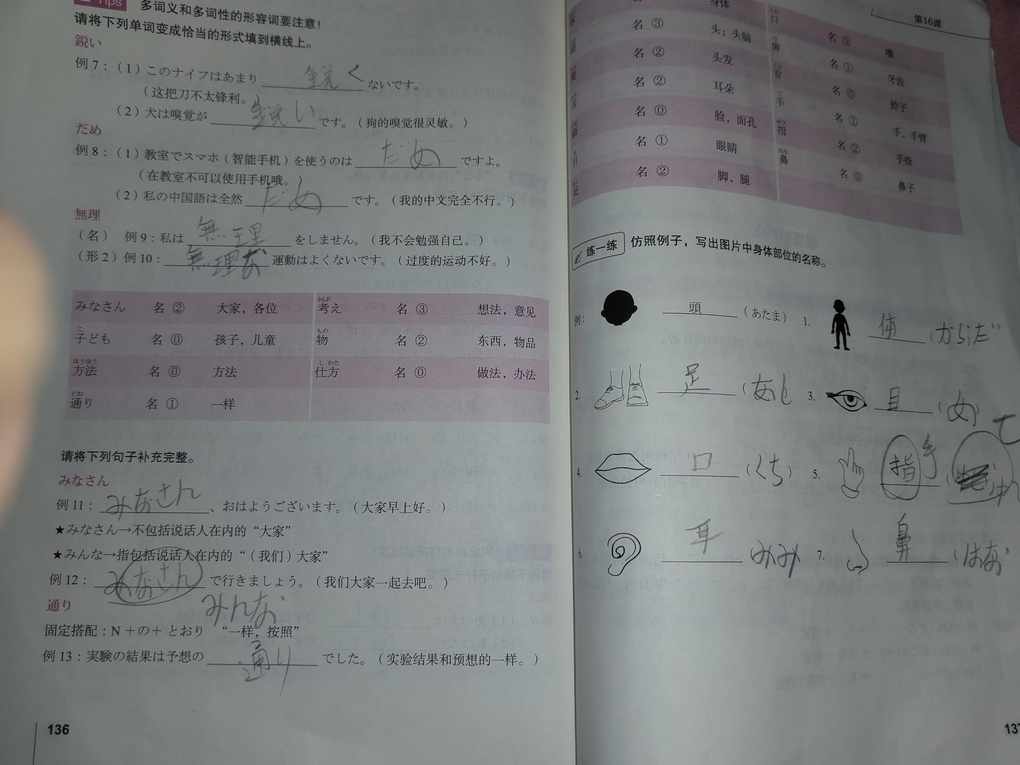 Tips 多词义和多词性的形容词要注意！
请将下列单词变成恰当的形式填到横线上。
鋭い
例7：（1）このナイフはあまり 鋭く ないです。
（这把刀不太锋利。
（2）犬は嗅覚が 鋭い です。（狗的嗅觉很灵敏。）
だめ
例8：（1）教室でスマホ（智能手机）を使うのは だめ ですよ。
（在教室不可以使用手机哦。）
（2）私の中国語は全然 だめ です。（我的中文完全不行。）
無理
（名） 例9：私は 無理 をしません。（我不会勉强自己。）
（形2）例10： 無理な 運動はよくないです。（过度的运动不好。）
みなさん 名 ② 大家，各位 考え 名 ③ 想法，意见
子ども 名 ⓪ 孩子，儿童 物 名 ② 东西，物品
方法 名 ⓪ 方法 仕方 名 ⓪ 做法，办法
通り 名 ① 一样
请将下列句子补充完整。
みなさん
例11： みなさん 、おはようございます。（大家早上好。）
★みなさん→不包括说话人在内的“大家”
★みんな→指包括说话人在内的“（我们）大家”
例12： みなさん で行きましょう。（我们大家一起去吧。）
みんな
通り
固定搭配：N＋の＋とおり “一样，按照”
例13：実験の結果は予想の 通り でした。（实验结果和预想的一样。）
136
第16课
身体
名 ③ 头；头脑 名 ① 牙齿
名 ② 头发
名 ② 耳朵 名 ① 手，手臂
名 ⓪ 脸，面孔 指 名 ② 手指
名 ① 眼睛 鼻 名 ⓪ 鼻子
名 ② 脚，腿
练一练 仿照例子，写出图片中身体部位的名称。
例： 頭 （あたま） 1. 体 （からだ
2. 足 （あし 3. 目 （め）
4. 口 （くち） 5. 指 手 て
耳 みみ 7. 鼻 （はな